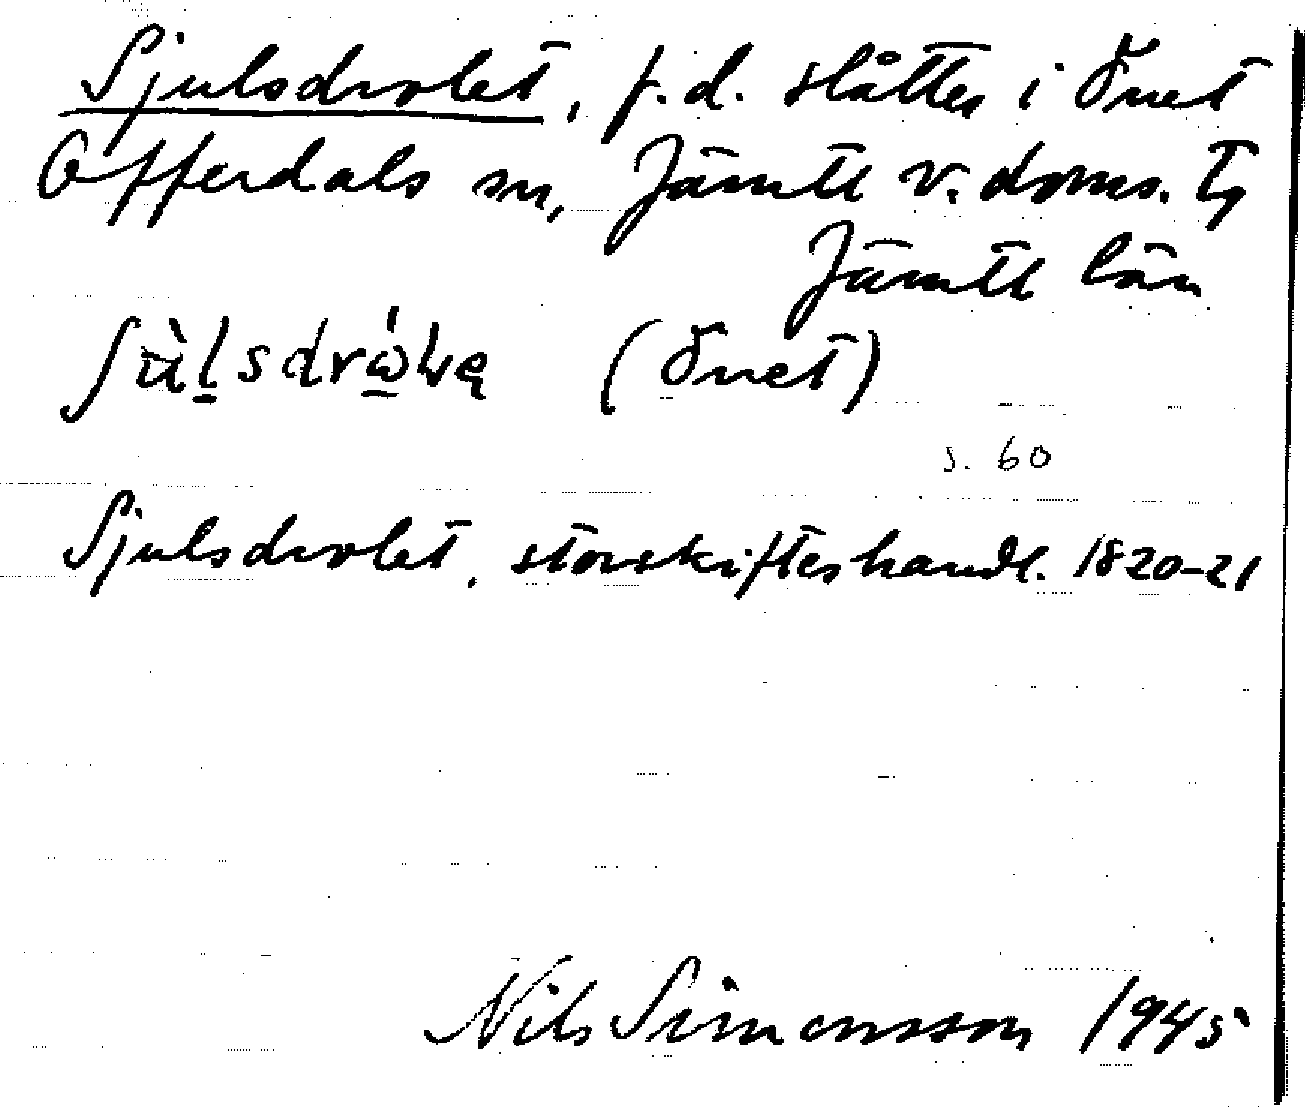 Sjulsdrolet, f.d. slåtter i Önet
Offerdals sn, Jämtl v. doms. Tg
Jämtl län
(Önet)
s. 60
Sjulsdrolet, storskifteshandl. 1820-21
Nils Simonsson 1945